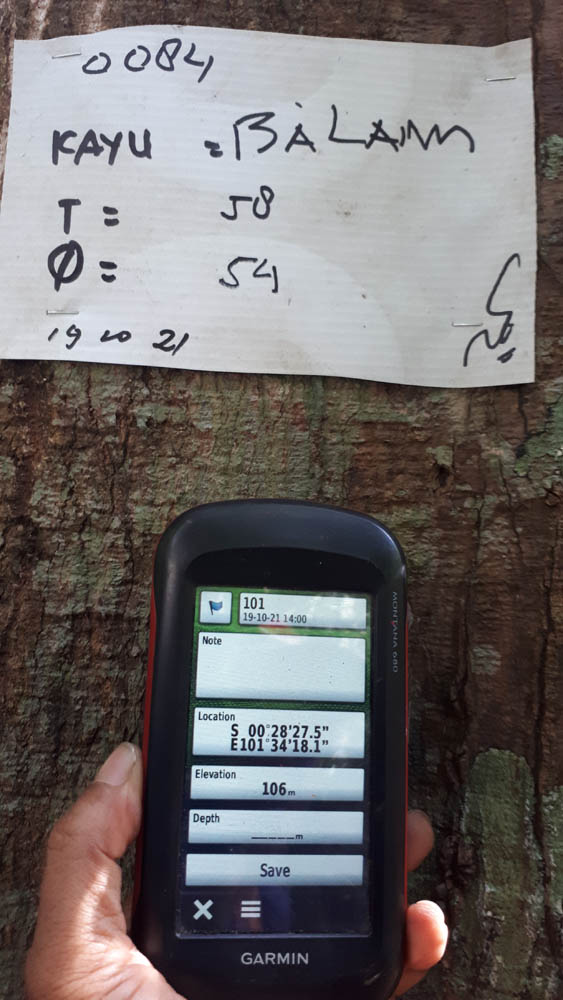 0084
KAYU = BALAM
T = 58
Ø = 54
19 10 21
101
19-10-21 14:00
Note
Location
S 00°28'27.5"
E101°34'18.1"
Elevation
106m
Depth
_____m
Save
GARMIN
MONTANA 680